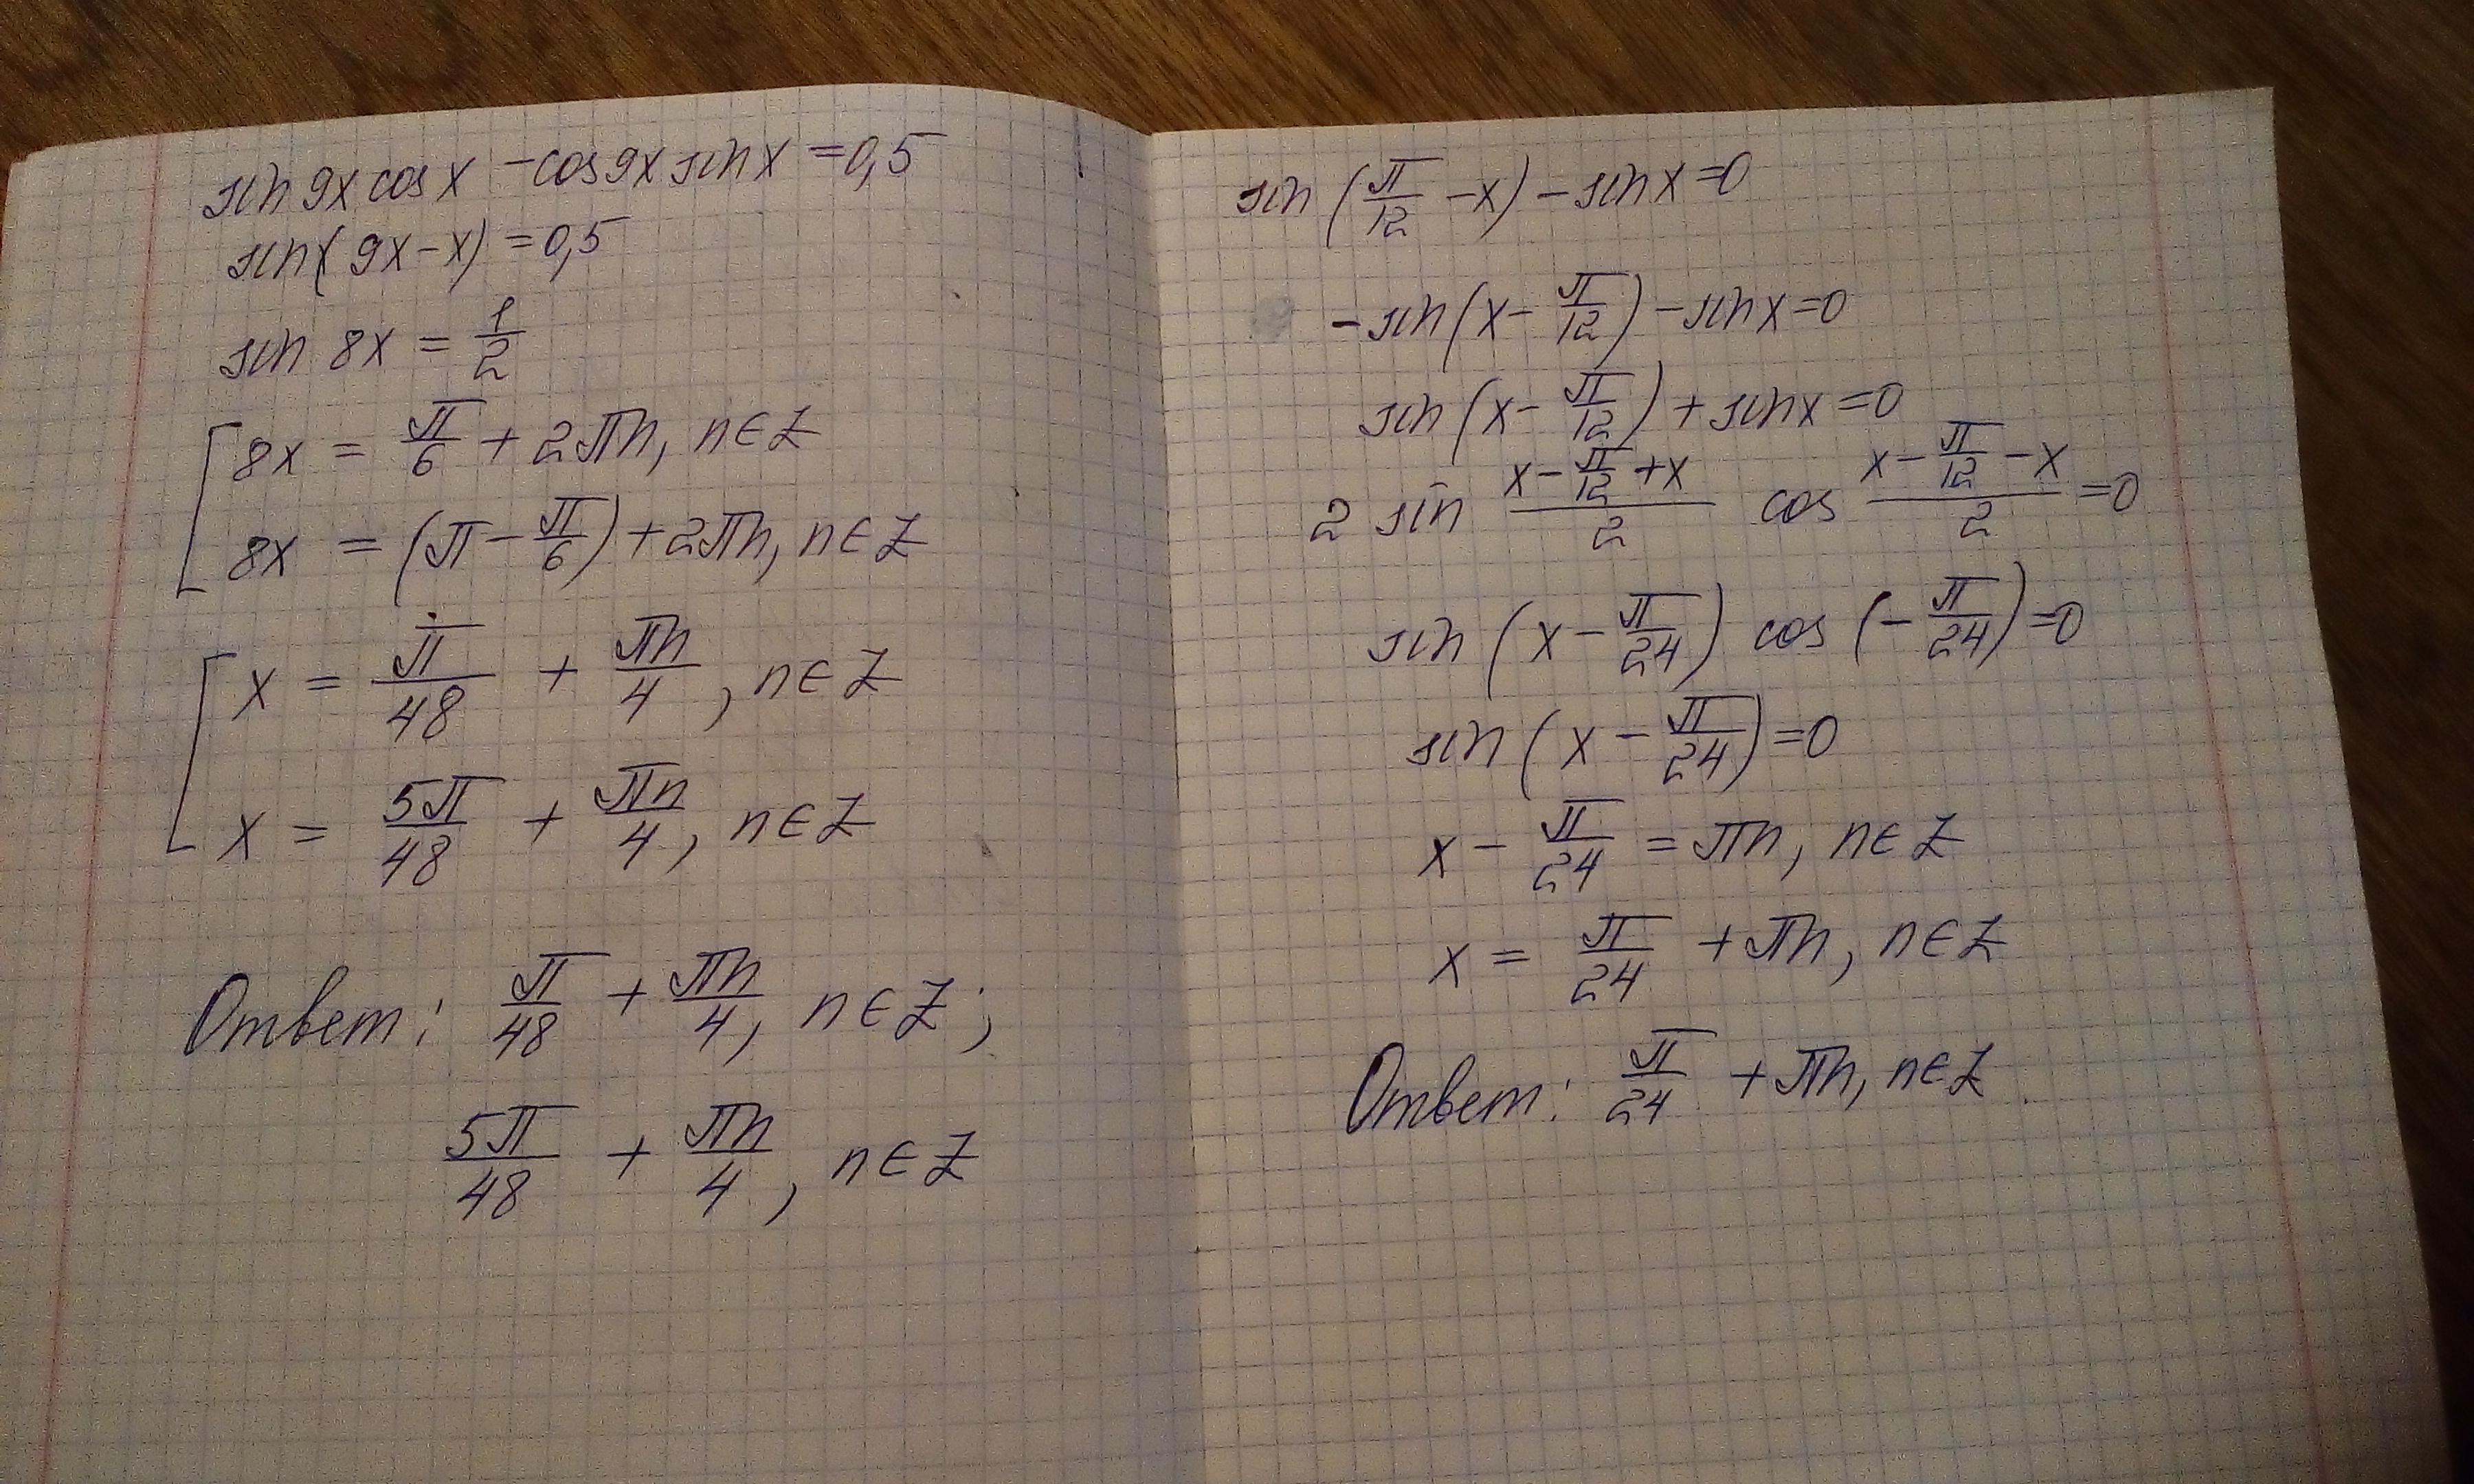 sin 9x cos x - cos 9x sin x = 0,5
sin(9x - x) = 0,5
sin 8x = 1/2
[ 8x = π/6 + 2πn, n∈Z
8x = (π - π/6) + 2πn, n∈Z
[ x = π/48 + πn/4, n∈Z
x = 5π/48 + πn/4, n∈Z
Ответ: π/48 + πn/4, n∈Z;
5π/48 + πn/4, n∈Z
sin(π/12 - x) - sin x = 0
- sin(x - π/12) - sin x = 0
sin(x - π/12) + sin x = 0
2 sin (x - π/12 + x)/2 cos (x - π/12 - x)/2 = 0
sin(x - π/24) cos(-π/24) = 0
sin(x - π/24) = 0
x - π/24 = πn, n∈Z
x = π/24 + πn, n∈Z
Ответ: π/24 + πn, n∈Z